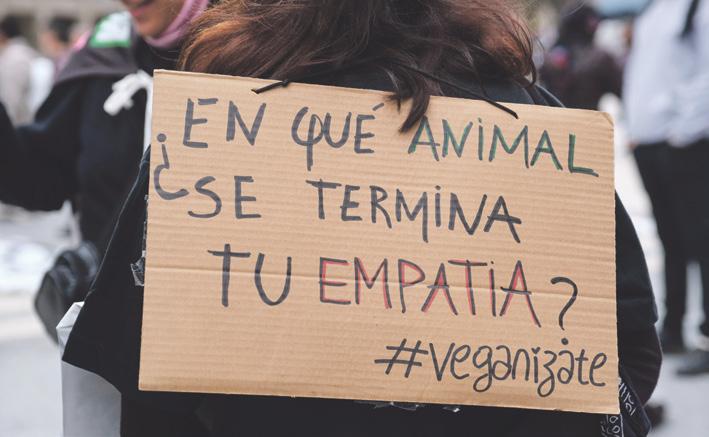 ¿EN QUÉ ANIMAL
SE TERMINA
TU EMPATiA?
#veganizate